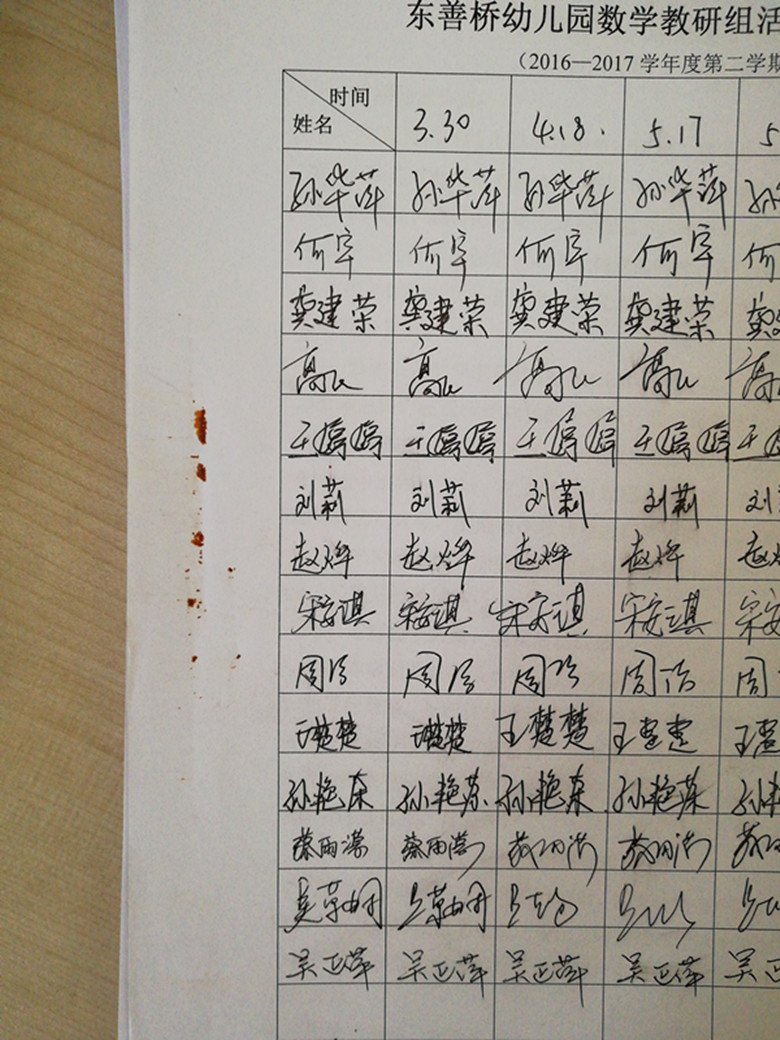 东善桥幼儿园数学教研组活
（2016—2017 学年度第二学期
时间
姓名 3.30 4.18. 5.17 5
孙华萍 孙华萍 孙华萍 孙华萍 孙
何宇 何宇 何宇 何宇 何
龚建荣 龚建荣 龚建荣 龚建荣 龚
高 高 高 高 高
王婷婷 王婷婷 王婷婷 王婷婷 王
刘莉 刘莉 刘莉 刘莉 刘
赵烨 赵烨 赵烨 赵烨 赵
宋安琪 宋安琪 宋安琪 宋安琪 宋安
周洁 周洁 周洁 周洁 周
王楚楚 王楚楚 王楚楚 王楚楚 王楚
孙艳东 孙艳东 孙艳东 孙艳东 孙
蔡雨 蔡雨 蔡雨 蔡雨 蔡
吴
吴正萍 吴正萍 吴正萍 吴正萍 吴正